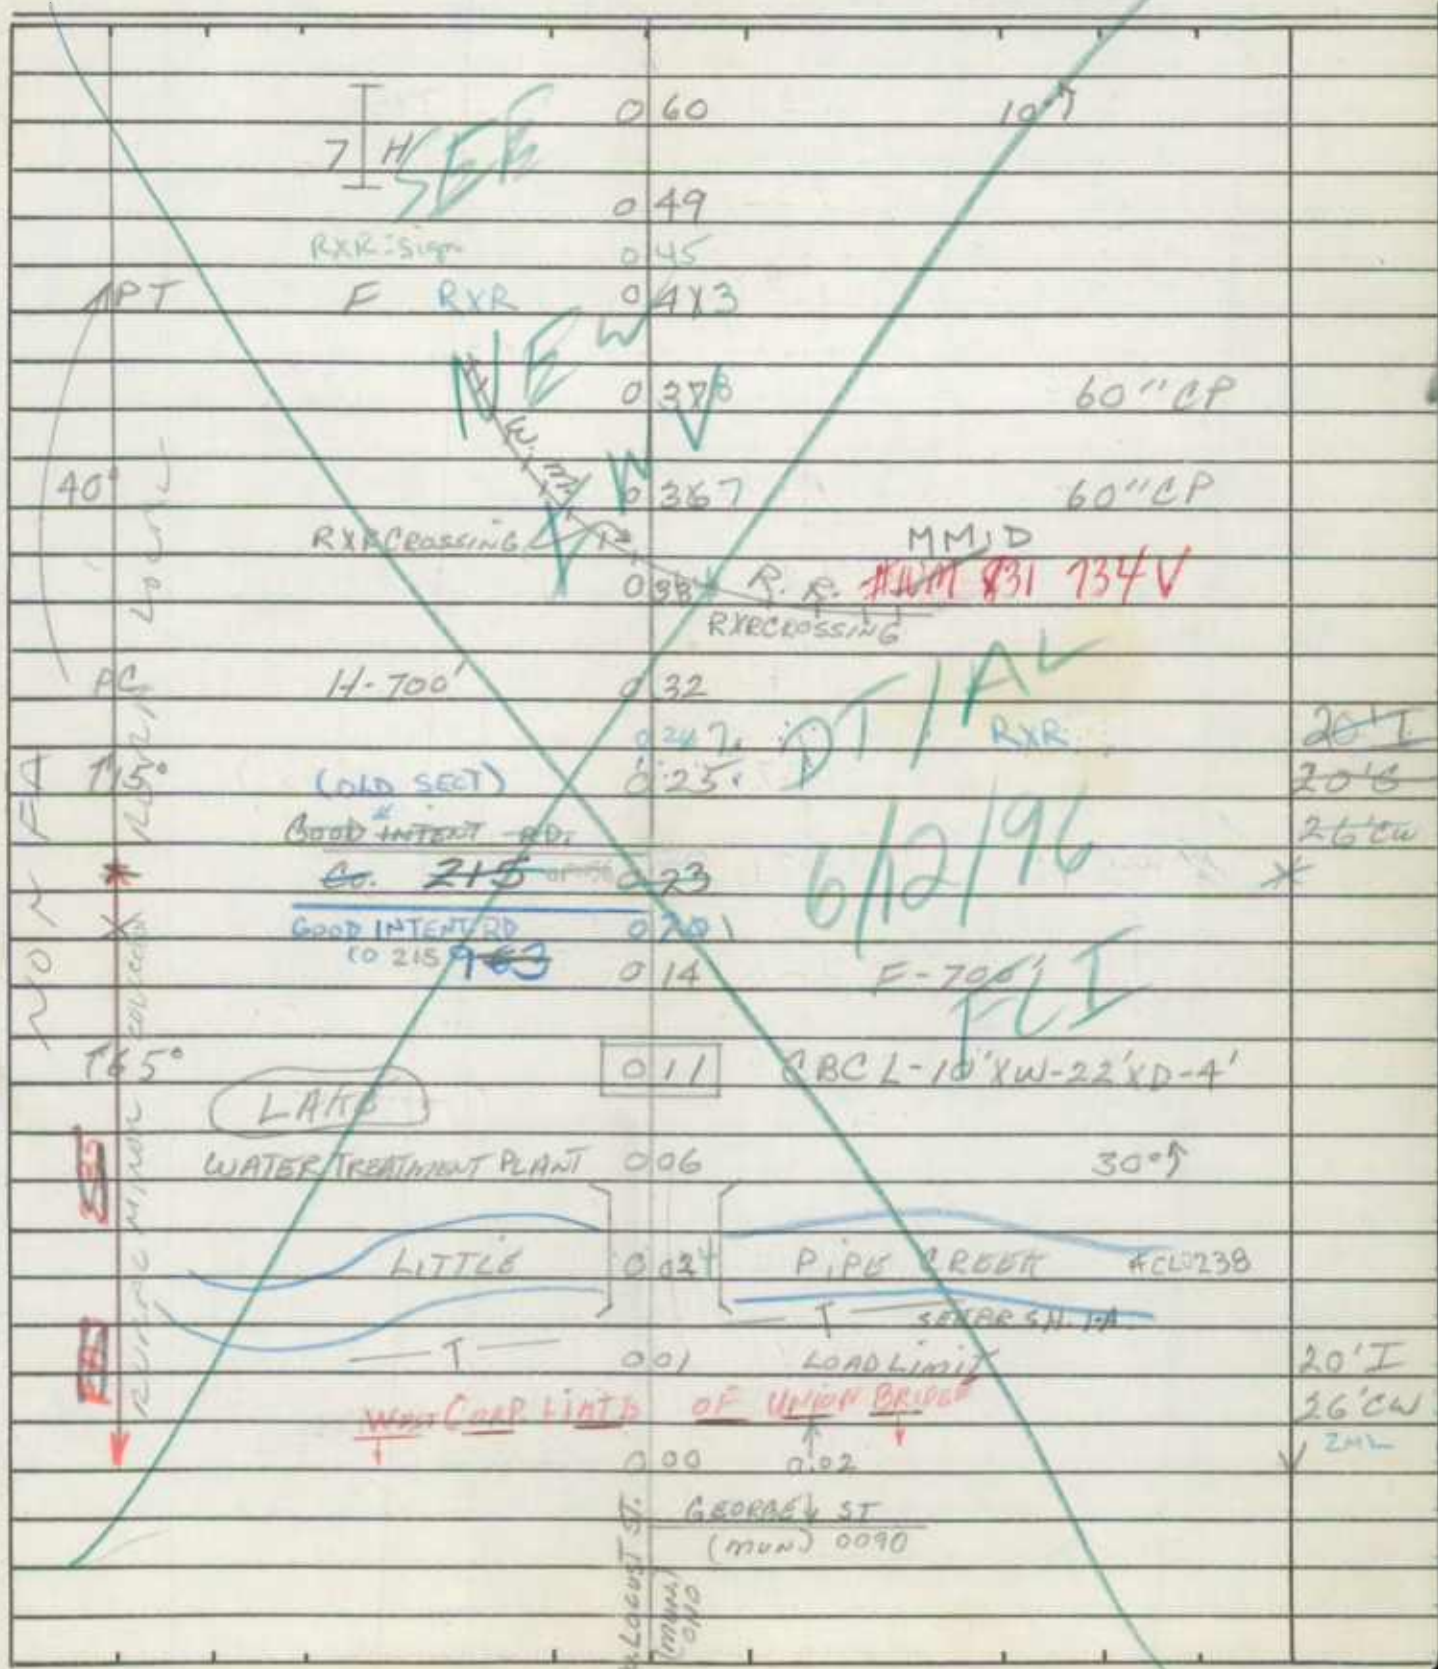 0 60 10°
7 H SEE
0 49
RXR Sign 0 45
PT F RXR 0 4 3
NEW
0 37 8 60" CP
W.M.
40° 0 36 7 60" CP
RXR CROSSING MMID
0 33 R.R. 831 734V
RXR CROSSING
PC H-700' 0 32
0 24 7 DTIAL RXR 20' I
15° (OLD SECT) 0 25
GOOD INTENT RD. 6/12/96 26' CW
Co. 215 0 23
GOOD INTENT RD 0 20 1
CO 215 963 0 14 F-700'
FCI
0 11 CBC L-10'XW-22'XD-4'
LAKE
WATER TREATMENT PLANT 0 06 30°
LITTLE 0 02 4 PIPE CREEK #CL0238
T
T 0 01 LOAD LIMIT 20' I
WEST CORP. LIMITS OF UNION BRIDGE 26' CW
0 00 0.02
GEORGE ST
(MUN) 0090
LOCUST ST.
(MUN.)
RURAL MINOR COLLECTOR